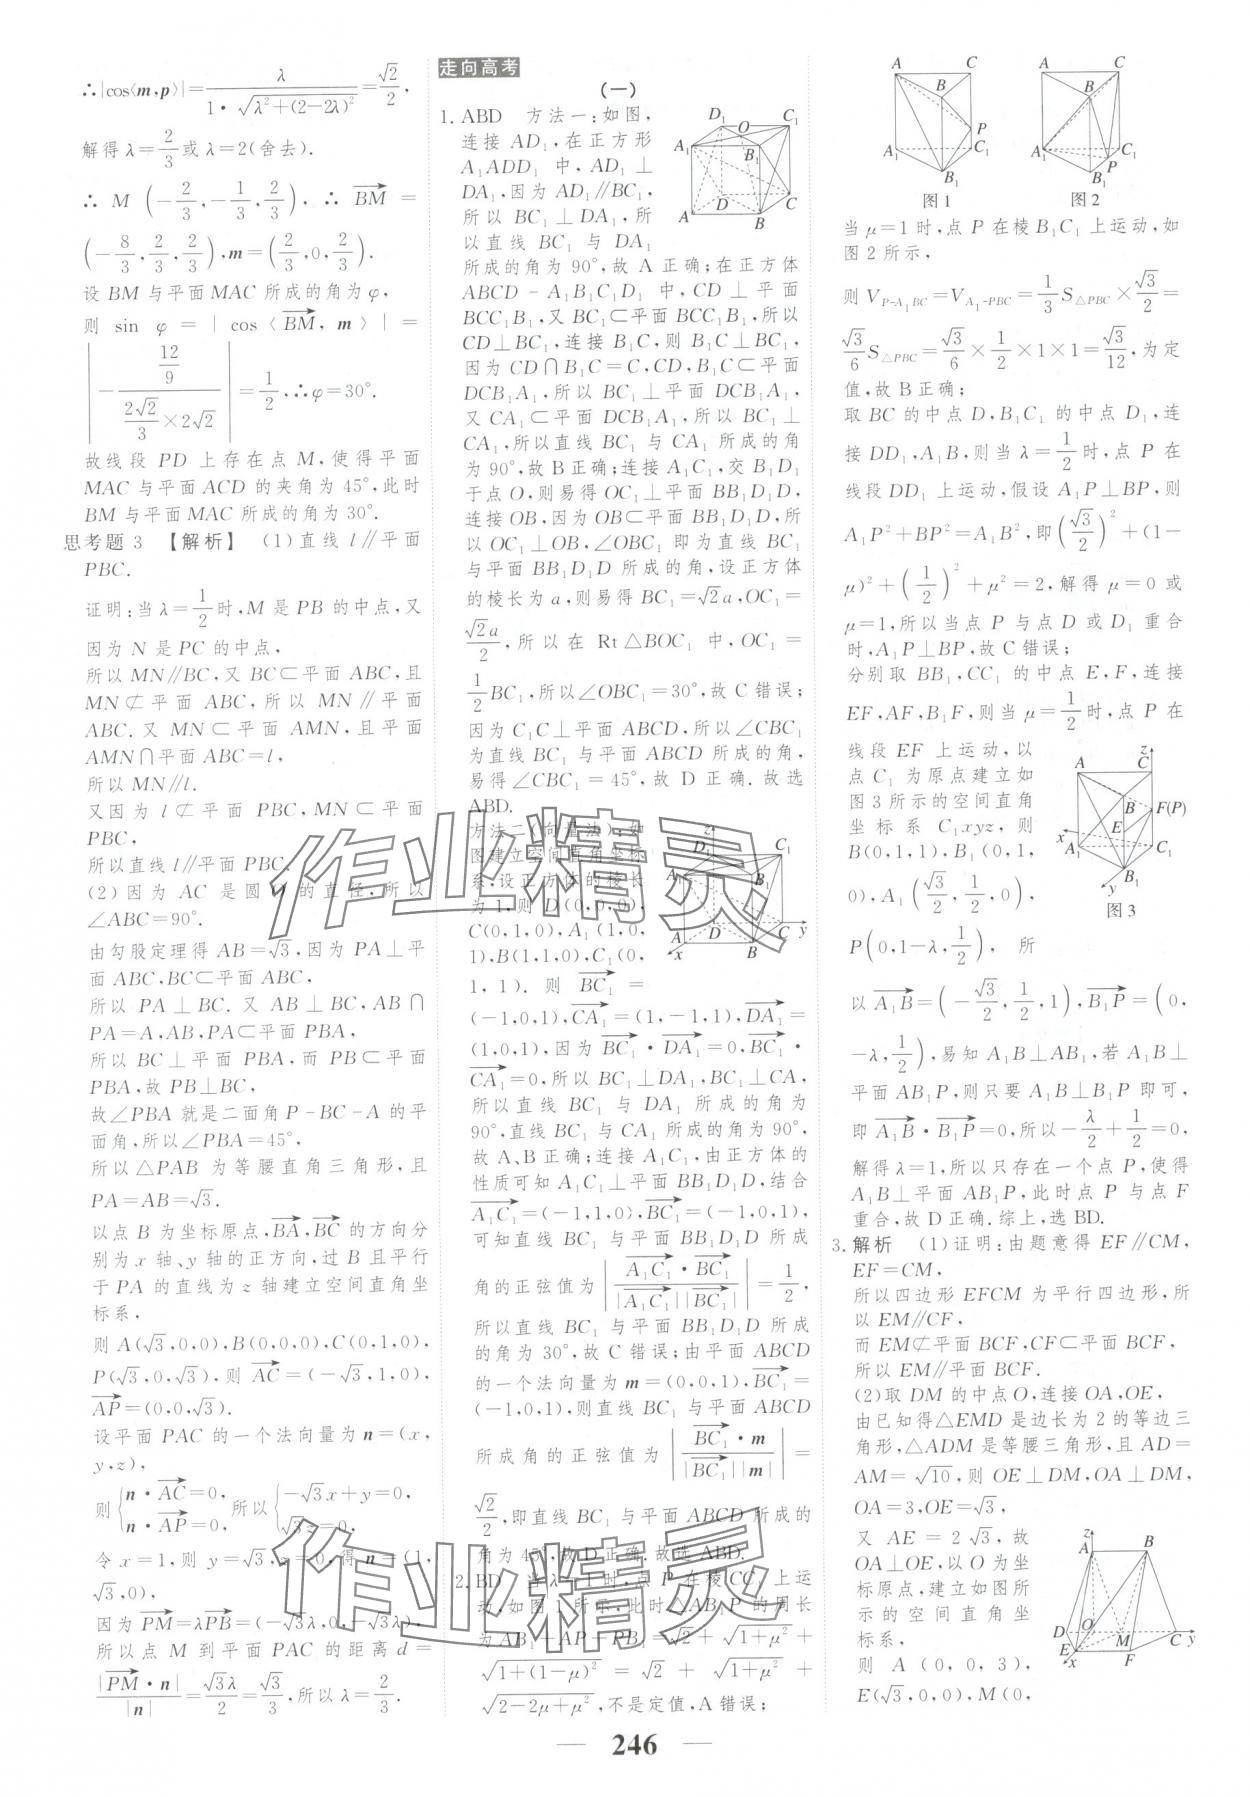 ∴|cos⟨m,p⟩|=λ/(1·√(λ²+(2-2λ)²))=√2/2,
解得λ=2/3或λ=2(舍去).
∴ M(-2/3,-1/3,2/3),∴ BM=
(-8/3,2/3,2/3),m=(2/3,0,2/3).
设 BM 与平面 MAC 所成的角为φ,
则 sin φ=|cos⟨BM,m⟩|=
|-(12/9)/((2√2/3)×2√2)|=1/2,∴φ=30°.
故线段 PD 上存在点 M,使得平面
MAC 与平面 ACD 的夹角为 45°,此时
BM 与平面 MAC 所成的角为 30°.
思考题 3 【解析】 (1)直线 l∥平面
PBC.
证明:当λ=1/2时,M 是 PB 的中点,又
因为 N 是 PC 的中点,
所以 MN∥BC,又 BC⊂平面 ABC,且
MN⊄平面 ABC,所以 MN∥平面
ABC.又 MN⊂平面 AMN,且平面
AMN∩平面 ABC=l,
所以 MN∥l.
又因为 l⊄平面 PBC,MN⊂平面
PBC,
所以直线 l∥平面 PBC.
(2)因为 AC 是圆 的直径,所以
∠ABC=90°.
由勾股定理得 AB=√3,因为 PA⊥平
面 ABC,BC⊂平面 ABC,
所以 PA⊥BC.又 AB⊥BC,AB∩
PA=A,AB,PA⊂平面 PBA,
所以 BC⊥平面 PBA,而 PB⊂平面
PBA,故 PB⊥BC,
故∠PBA 就是二面角 P-BC-A 的平
面角,所以∠PBA=45°,
所以△PAB 为等腰直角三角形,且
PA=AB=√3.
以点 B 为坐标原点,BA,BC 的方向分
别为 x 轴、y 轴的正方向,过 B 且平行
于 PA 的直线为 z 轴建立空间直角坐
标系,
则 A(√3,0,0),B(0,0,0),C(0,1,0),
P(√3,0,√3),则 AC=(-√3,1,0),
AP=(0,0,√3).
设平面 PAC 的一个法向量为 n=(x,
y,z),
则{n·AC=0, n·AP=0, 所以{-√3x+y=0, √3z=0,
令 x=1,则 y=√3,z=0,得 n=(1,
√3,0),
因为 PM=λPB=(-√3λ,0,-√3λ)
所以点 M 到平面 PAC 的距离 d=
|PM·n|/|n|=√3λ/2=√3/3,所以λ=2/3.
走向高考
(一)
1. ABD 方法一:如图,
连接 AD₁,在正方形
A₁ADD₁ 中,AD₁⊥
DA₁,因为 AD₁∥BC₁,
所以 BC₁⊥DA₁,所
以直线 BC₁ 与 DA₁
所成的角为 90°,故 A 正确;在正方体
ABCD-A₁B₁C₁D₁ 中,CD⊥平面
BCC₁B₁,又 BC₁⊂平面 BCC₁B₁,所以
CD⊥BC₁,连接 B₁C,则 B₁C⊥BC₁,
因为 CD∩B₁C=C,CD,B₁C⊂平面
DCB₁A₁,所以 BC₁⊥平面 DCB₁A₁,
又 CA₁⊂平面 DCB₁A₁,所以 BC₁⊥
CA₁,所以直线 BC₁ 与 CA₁ 所成的角
为 90°,故 B 正确;连接 A₁C₁,交 B₁D₁
于点 O,则易得 OC₁⊥平面 BB₁D₁D,
连接 OB,因为 OB⊂平面 BB₁D₁D,所
以 OC₁⊥OB,∠OBC₁ 即为直线 BC₁
与平面 BB₁D₁D 所成的角,设正方体
的棱长为 a,则易得 BC₁=√2a,OC₁=
√2a/2,所以在 Rt△BOC₁ 中,OC₁=
1/2 BC₁,所以∠OBC₁=30°,故 C 错误;
因为 C₁C⊥平面 ABCD,所以∠CBC₁
为直线 BC₁ 与平面 ABCD 所成的角,
易得∠CBC₁=45°,故 D 正确.故选
ABD.
方法二(向量法):如
图建立空间直角坐标
系,设正方体的棱长
为 1,则 D(0,0,0),
C(0,1,0),A₁(1,0,
1),B(1,1,0),C₁(0,
1,1).则 BC₁=
(-1,0,1),CA₁=(1,-1,1),DA₁=
(1,0,1),因为 BC₁·DA₁=0,BC₁·
CA₁=0,所以 BC₁⊥DA₁,BC₁⊥CA₁,
所以直线 BC₁ 与 DA₁ 所成的角为
90°,直线 BC₁ 与 CA₁ 所成的角为 90°,
故 A、B 正确;连接 A₁C₁,由正方体的
性质可知 A₁C₁⊥平面 BB₁D₁D,结合
A₁C₁=(-1,1,0),BC₁=(-1,0,1),
可知直线 BC₁ 与平面 BB₁D₁D 所成
角的正弦值为|A₁C₁·BC₁/(|A₁C₁||BC₁|)|=1/2,
所以直线 BC₁ 与平面 BB₁D₁D 所成
的角为 30°,故 C 错误;由平面 ABCD
的一个法向量为 m=(0,0,1),BC₁=
(-1,0,1),则直线 BC₁ 与平面 ABCD
所成角的正弦值为|BC₁·m/(|BC₁||m|)|=
√2/2,即直线 BC₁ 与平面 ABCD 所成的
角为 45°,故 D 正确.故选 ABD.
2. BD 当λ=1 时,点 P 在棱 CC₁ 上运
动,如图 1 所示,此时△AB₁P 的周长
为 AB₁+AP+PB₁=√2+√(1+μ²)+
√(1+(1-μ)²)=√2+√(1+μ²)+
√(2-2μ+μ²),不是定值,A 错误;
A C B P A₁ C₁ B₁ 图 1
A C B A₁ C₁ P B₁ 图 2
当μ=1 时,点 P 在棱 B₁C₁ 上运动,如
图 2 所示,
则 V_P-A₁BC=V_A₁-PBC=1/3 S△PBC×√3/2=
√3/6 S△PBC=√3/6×1/2×1×1=√3/12,为定
值,故 B 正确;
取 BC 的中点 D,B₁C₁ 的中点 D₁,连
接 DD₁,A₁B,则当λ=1/2时,点 P 在
线段 DD₁ 上运动,假设 A₁P⊥BP,则
A₁P²+BP²=A₁B²,即(√3/2)²+(1-
μ)²+(1/2)²+μ²=2,解得μ=0 或
μ=1,所以当点 P 与点 D 或 D₁ 重合
时,A₁P⊥BP,故 C 错误;
分别取 BB₁,CC₁ 的中点 E,F,连接
EF,AF,B₁F,则当μ=1/2时,点 P 在
线段 EF 上运动,以
点 C₁ 为原点建立如
图 3 所示的空间直角
坐标系 C₁xyz,则
B(0,1,1),B₁(0,1,
0),A₁(√3/2,1/2,0),
P(0,1-λ,1/2),所
z A C B E F(P) x A₁ C₁ y B₁ 图 3
以 A₁B=(-√3/2,1/2,1),B₁P=(0,
-λ,1/2),易知 A₁B⊥AB₁,若 A₁B⊥
平面 AB₁P,则只要 A₁B⊥B₁P 即可,
即 A₁B·B₁P=0,所以-λ/2+1/2=0,
解得λ=1,所以只存在一个点 P,使得
A₁B⊥平面 AB₁P,此时点 P 与点 F
重合,故 D 正确.综上,选 BD.
3. 解析 (1)证明:由题意得 EF∥CM,
EF=CM,
所以四边形 EFCM 为平行四边形,所
以 EM∥CF,
而 EM⊄平面 BCF,CF⊂平面 BCF,
所以 EM∥平面 BCF.
(2)取 DM 的中点 O,连接 OA,OE,
由已知得△EMD 是边长为 2 的等边三
角形,△ADM 是等腰三角形,且 AD=
AM=√10,则 OE⊥DM,OA⊥DM,
OA=3,OE=√3,
又 AE=2√3,故
OA⊥OE,以 O 为坐
标原点,建立如图所
示的空间直角坐
标系,
则 A(0,0,3),
E(√3,0,0),M(0,
z A B D O M C y E F x
作业精灵
作业精灵
246